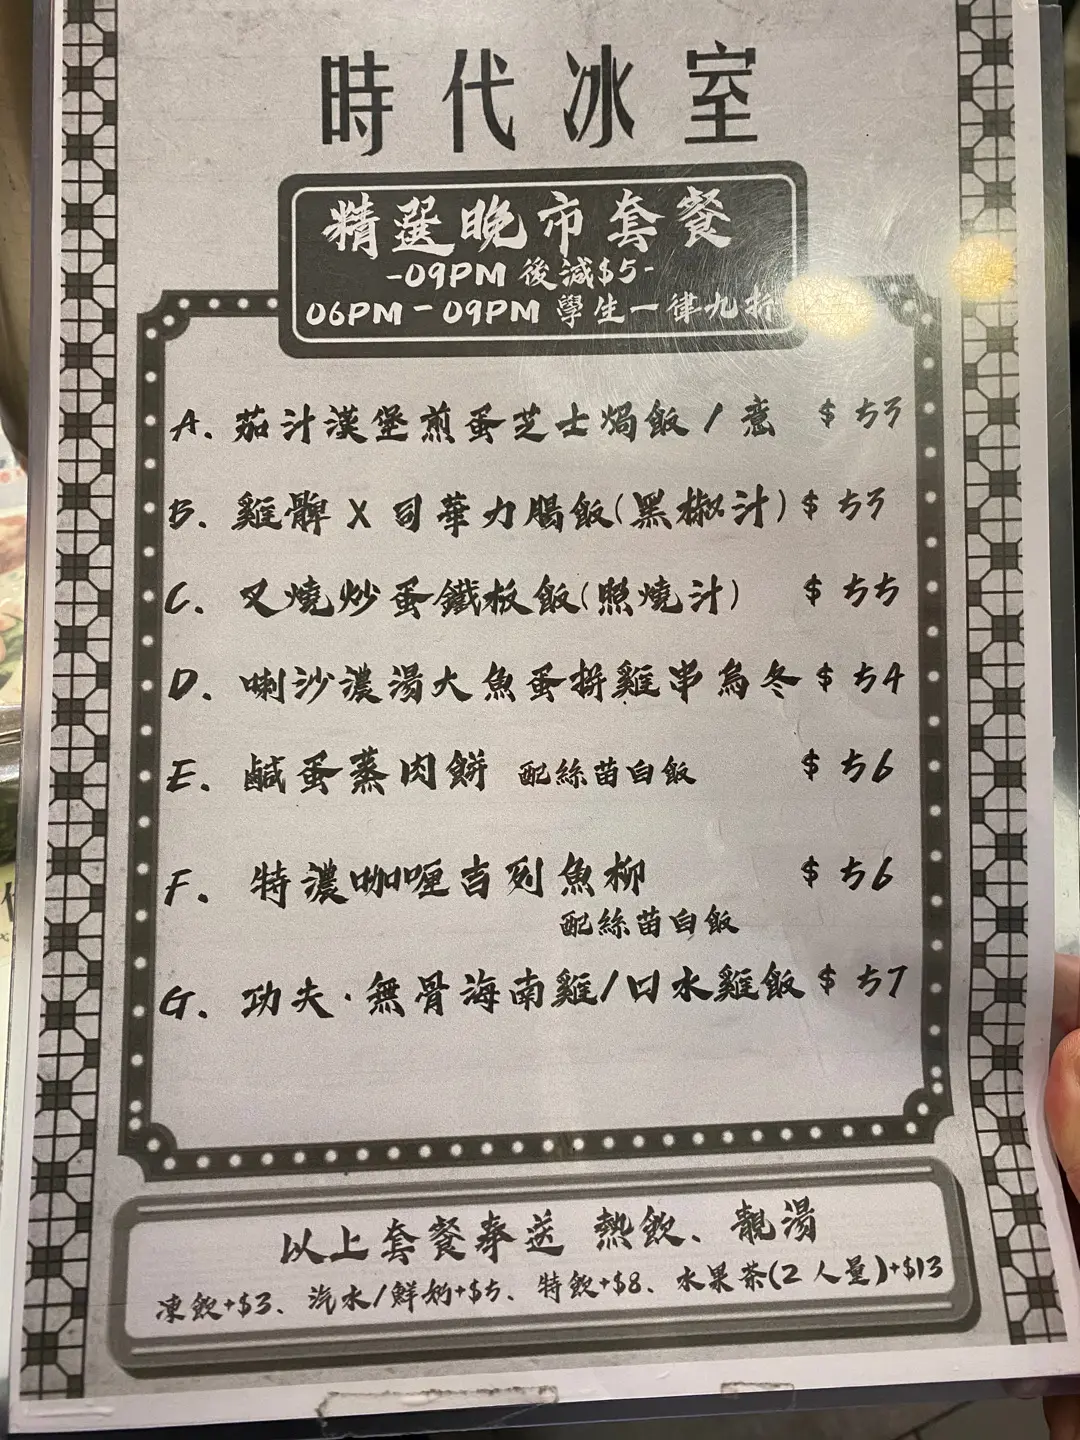 時代冰室
精選晚市套餐
-09PM 後減$5-
06PM-09PM 學生一律九折
A. 茄汁漢堡煎蛋芝士焗飯/意 $53
B. 雞髀 X 司華力腸飯(黑椒汁) $53
C. 叉燒炒蛋鐵板飯(照燒汁) $55
D. 喇沙濃湯大魚蛋拼雞串烏冬 $54
E. 鹹蛋蒸肉餅 配絲苗白飯 $56
F. 特濃咖喱吉列魚柳 $56
配絲苗白飯
G. 功夫·無骨海南雞/口水雞飯 $57
以上套餐奉送 熱飲、靚湯
凍飲+$3、汽水/鮮奶+$5、特飲+$8、水果茶(2人量)+$13